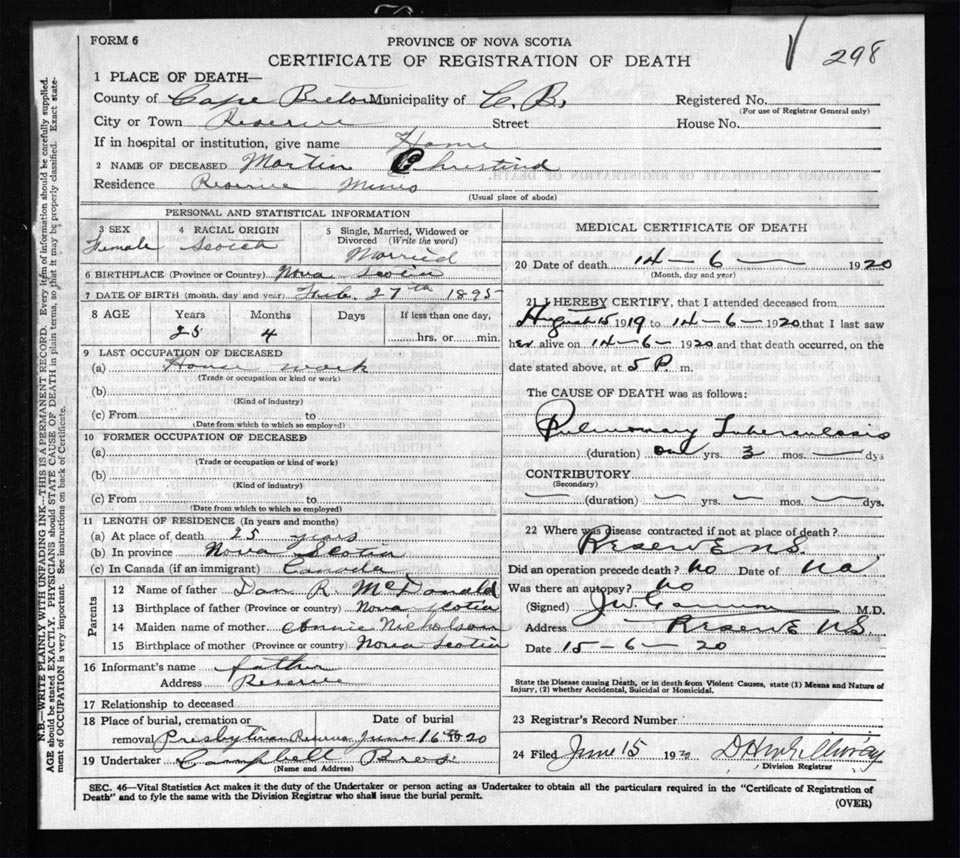 FORM 6
PROVINCE OF NOVA SCOTIA
CERTIFICATE OF REGISTRATION OF DEATH
298
1 PLACE OF DEATH—
County of Cape Breton Municipality of C. B. Registered No.
(For use of Registrar General only)
City or Town Reserve Street House No.
If in hospital or institution, give name Home
2 NAME OF DECEASED Martin Christind
Residence Reserve Mines
(Usual place of abode)
PERSONAL AND STATISTICAL INFORMATION
3 SEX Female
4 RACIAL ORIGIN Scotch
5 Single, Married, Widowed or Divorced (Write the word) Married
6 BIRTHPLACE (Province or Country) Nova Scotia
7 DATE OF BIRTH (month, day and year) Feb. 27th 1895
8 AGE Years Months Days If less than one day,
25 4 hrs. or min.
9 LAST OCCUPATION OF DECEASED
(a) House work
(Trade or occupation or kind or work)
(b)
(Kind of industry)
(c) From to
(Date from which to which so employed)
10 FORMER OCCUPATION OF DECEASED
(a)
(Trade or occupation or kind of work)
(b)
(Kind of industry)
(c) From to
(Date from which to which so employed)
11 LENGTH OF RESIDENCE (In years and months)
(a) At place of death 25 years
(b) In province Nova Scotia
(c) In Canada (if an immigrant) Canada
Parents
12 Name of father Dan R. McDonald
13 Birthplace of father (Province or country) Nova Scotia
14 Maiden name of mother Annie Nicholson
15 Birthplace of mother (Province or country) Nova Scotia
16 Informant's name father
Address Reserve
17 Relationship to deceased
18 Place of burial, cremation or removal Date of burial
Presbyterian Reserve June 16th 1920
19 Undertaker Campbell Bros.
(Name and Address)
MEDICAL CERTIFICATE OF DEATH
20 Date of death 14-6- 1920
(Month, day and year)
21 I HEREBY CERTIFY, that I attended deceased from
August 15 1919 to 14-6-1920 that I last saw
her alive on 14-6-1920 and that death occurred, on the
date stated above, at 5 P m.
The CAUSE OF DEATH was as follows:
Pulmonary Tuberculosis
(duration) one yrs. 3 mos. — dys
CONTRIBUTORY
(Secondary)
— (duration) — yrs. — mos. — dys.
22 Where was disease contracted if not at place of death?
Reserve N.S.
Did an operation precede death? No Date of Na
Was there an autopsy? No
(Signed) M.D.
Address Reserve N.S.
Date 15-6-20
State the Disease causing Death, or in death from Violent Causes, state (1) Means and Nature of
Injury, (2) whether Accidental, Suicidal or Homicidal.
23 Registrar's Record Number
24 Filed June 15 1920
Division Registrar
SEC. 46—Vital Statistics Act makes it the duty of the Undertaker or person acting as Undertaker to obtain all the particulars required in the "Certificate of Registration of
Death" and to fyle the same with the Division Registrar who shall issue the burial permit.
(OVER)
N.B.—WRITE PLAINLY WITH UNFADING INK—THIS IS A PERMANENT RECORD. Every item of information should be carefully supplied.
AGE should be stated EXACTLY. PHYSICIANS should STATE CAUSE OF DEATH in plain terms, so that it may be properly classified. Exact state-
ment of OCCUPATION is very important. See instructions on back of Certificate.